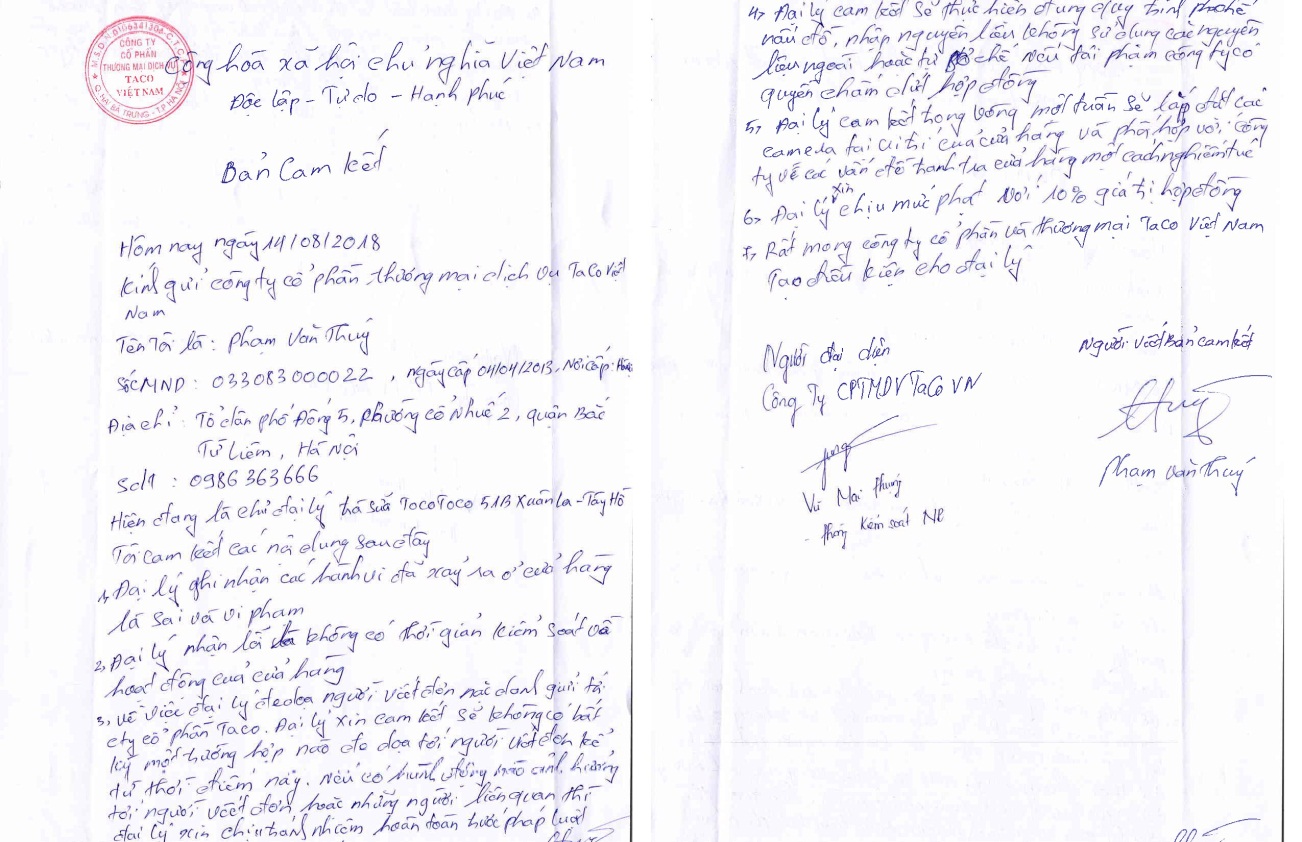 M.S.D.N:0106341306-C.T.C.P
CÔNG TY
CỔ PHẦN
THƯƠNG MẠI DỊCH VỤ
TACO
VIỆT NAM
Q.HAI BÀ TRƯNG - TP HÀ NỘI
Cộng hoà xã hội chủ nghĩa Việt Nam
Độc lập - Tự do - Hạnh phúc
Bản Cam kết
Hôm nay ngày 14/08/2018
Kính gửi công ty cổ phần thương mại dịch vụ TaCo Việt
Nam
Tên Tôi là : Phạm Văn Thuý
Số CMND : 033083000022 , ngày cấp 04/04/2013, Nơi cấp :
Địa chỉ : Tổ dân phố Đống 5, phường cổ Nhuế 2, quận Bắc
Từ Liêm , Hà Nội
Sdt : 0986 363 666
Hiện đang là chủ đại lý trà sữa TocoToco 51B Xuân La - Tây Hồ
Tôi cam kết các nội dung sau đây
1, Đại lý ghi nhận các hành vi đã xảy ra ở cửa hàng
là sai và vi phạm
2, Đại lý nhận lỗi không có thời gian kiểm soát về
hoạt động của cửa hàng
3, về việc đại lý đe doạ người viết đơn nặc danh gửi tới
cty cổ phần Taco. Đại lý xin cam kết sẽ không có bất
kỳ một trường hợp nào đe doạ tới người viết đơn kể
từ thời điểm này. Nếu có hành động nào ảnh hưởng
tới người viết đơn, hoặc những người liên quan thì
đại lý xin chịu trách nhiệm hoàn toàn trước pháp luật
4, Đại lý cam kết sẽ thực hiện đúng quy trình pha chế
nấu đồ, nhập nguyên liệu không sử dụng các nguyên
liệu ngoài hoặc tự chế nếu tái phạm công ty có
quyền chấm dứt hợp đồng
5, Đại lý cam kết trong vòng một tuần sẽ lắp đặt các
camera tại vị trí của cửa hàng và phối hợp với công
ty về các vấn đề thanh tra cửa hàng một cách nghiêm túc
6, Đại lý xin chịu mức phạt với 10% giá trị hợp đồng
7, Rất mong công ty cổ phần và thương mại TaCo Việt Nam
Tạo điều kiện cho đại lý
Người đại diện
Công Ty CPTMDV TaCo VN
Vũ Mai Phụng
- Phòng Kiểm soát NB
Người viết bản cam kết
Phạm Văn Thuý